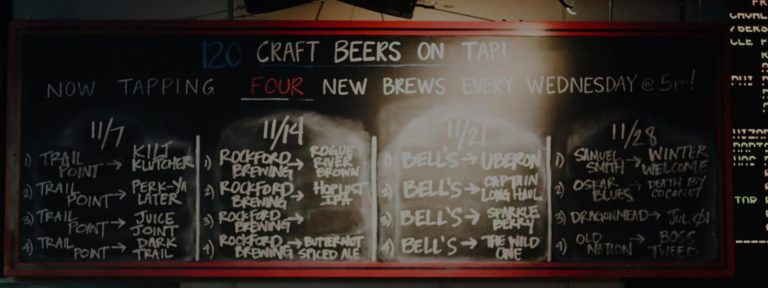 120 CRAFT BEERS ON TAP!
NOW TAPPING FOUR NEW BREWS EVERY WEDNESDAY @ 5pm!
11/7
1) TRAIL POINT → KILT KLUTCHER
2) TRAIL POINT → PERK-YA LATER
3) TRAIL POINT → JUICE JOINT
4) TRAIL POINT → DARK TRAIL
11/14
1) ROCKFORD BREWING → ROGUE RIVER BROWN
2) ROCKFORD BREWING → HOPLUST IPA
3) ROCKFORD BREWING →
4) ROCKFORD BREWING → BUTTERNUT SPICED ALE
11/21
1) BELL'S → UBERON
2) BELL'S → CAPTAIN LONG HAUL
3) BELL'S → SPARKLE BERRY
4) BELL'S → THE WILD ONE
11/28
1) SAMUEL SMITH → WINTER WELCOME
2) OSKAR BLUES → DEATH BY COCONUT
3) DRAGONMEAD → JUL ØL
4) OLD NATION → BOSS TWEED